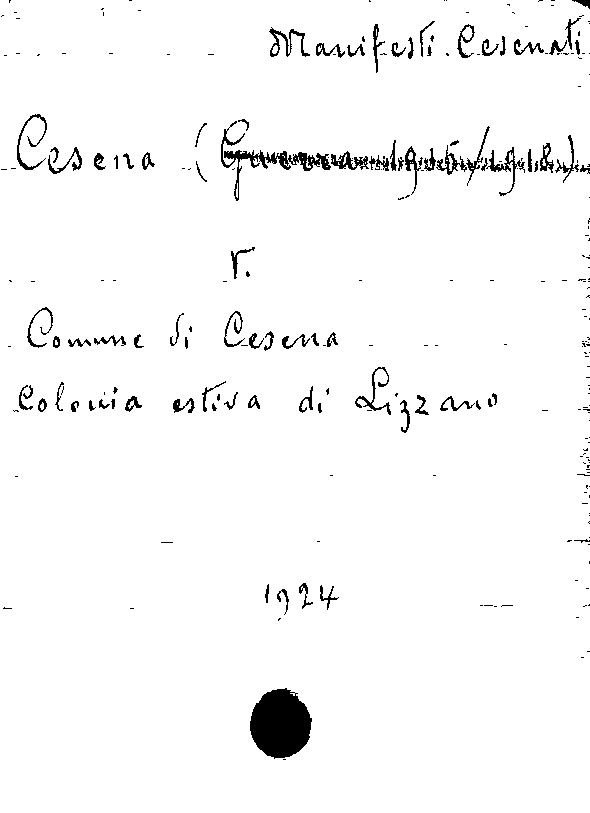 Manifesti Cesenati
Cesena (Guerra 1915/1918)
V.
Comune di Cesena
Colonia estiva di Lizzano
1924